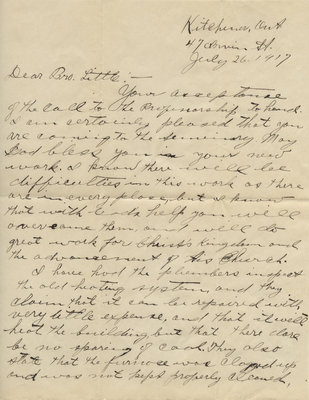 Kitchener, Ont
47 Irvin St.
July 26. 1917
Dear Bro. Little:—
Your acceptance
of the call to the Professorship to hand.
I am certainly pleased that you
are coming to the Seminary May
God bless you in your new
work. I know there will be
difficulties in this work as there
are in every place, but I know
that with Gods help you will
overcome them, and will do
great work for Christ's Kingdom and
the advancement of His Church.
I have had the plumbers inspect
the old heating system, and they
claim that it can be repaired with
very little expense, and that it will
heat the building but that there dare
be no sparing of coal. They also
state that the furnace was clogged up
and was not kept properly cleaned,